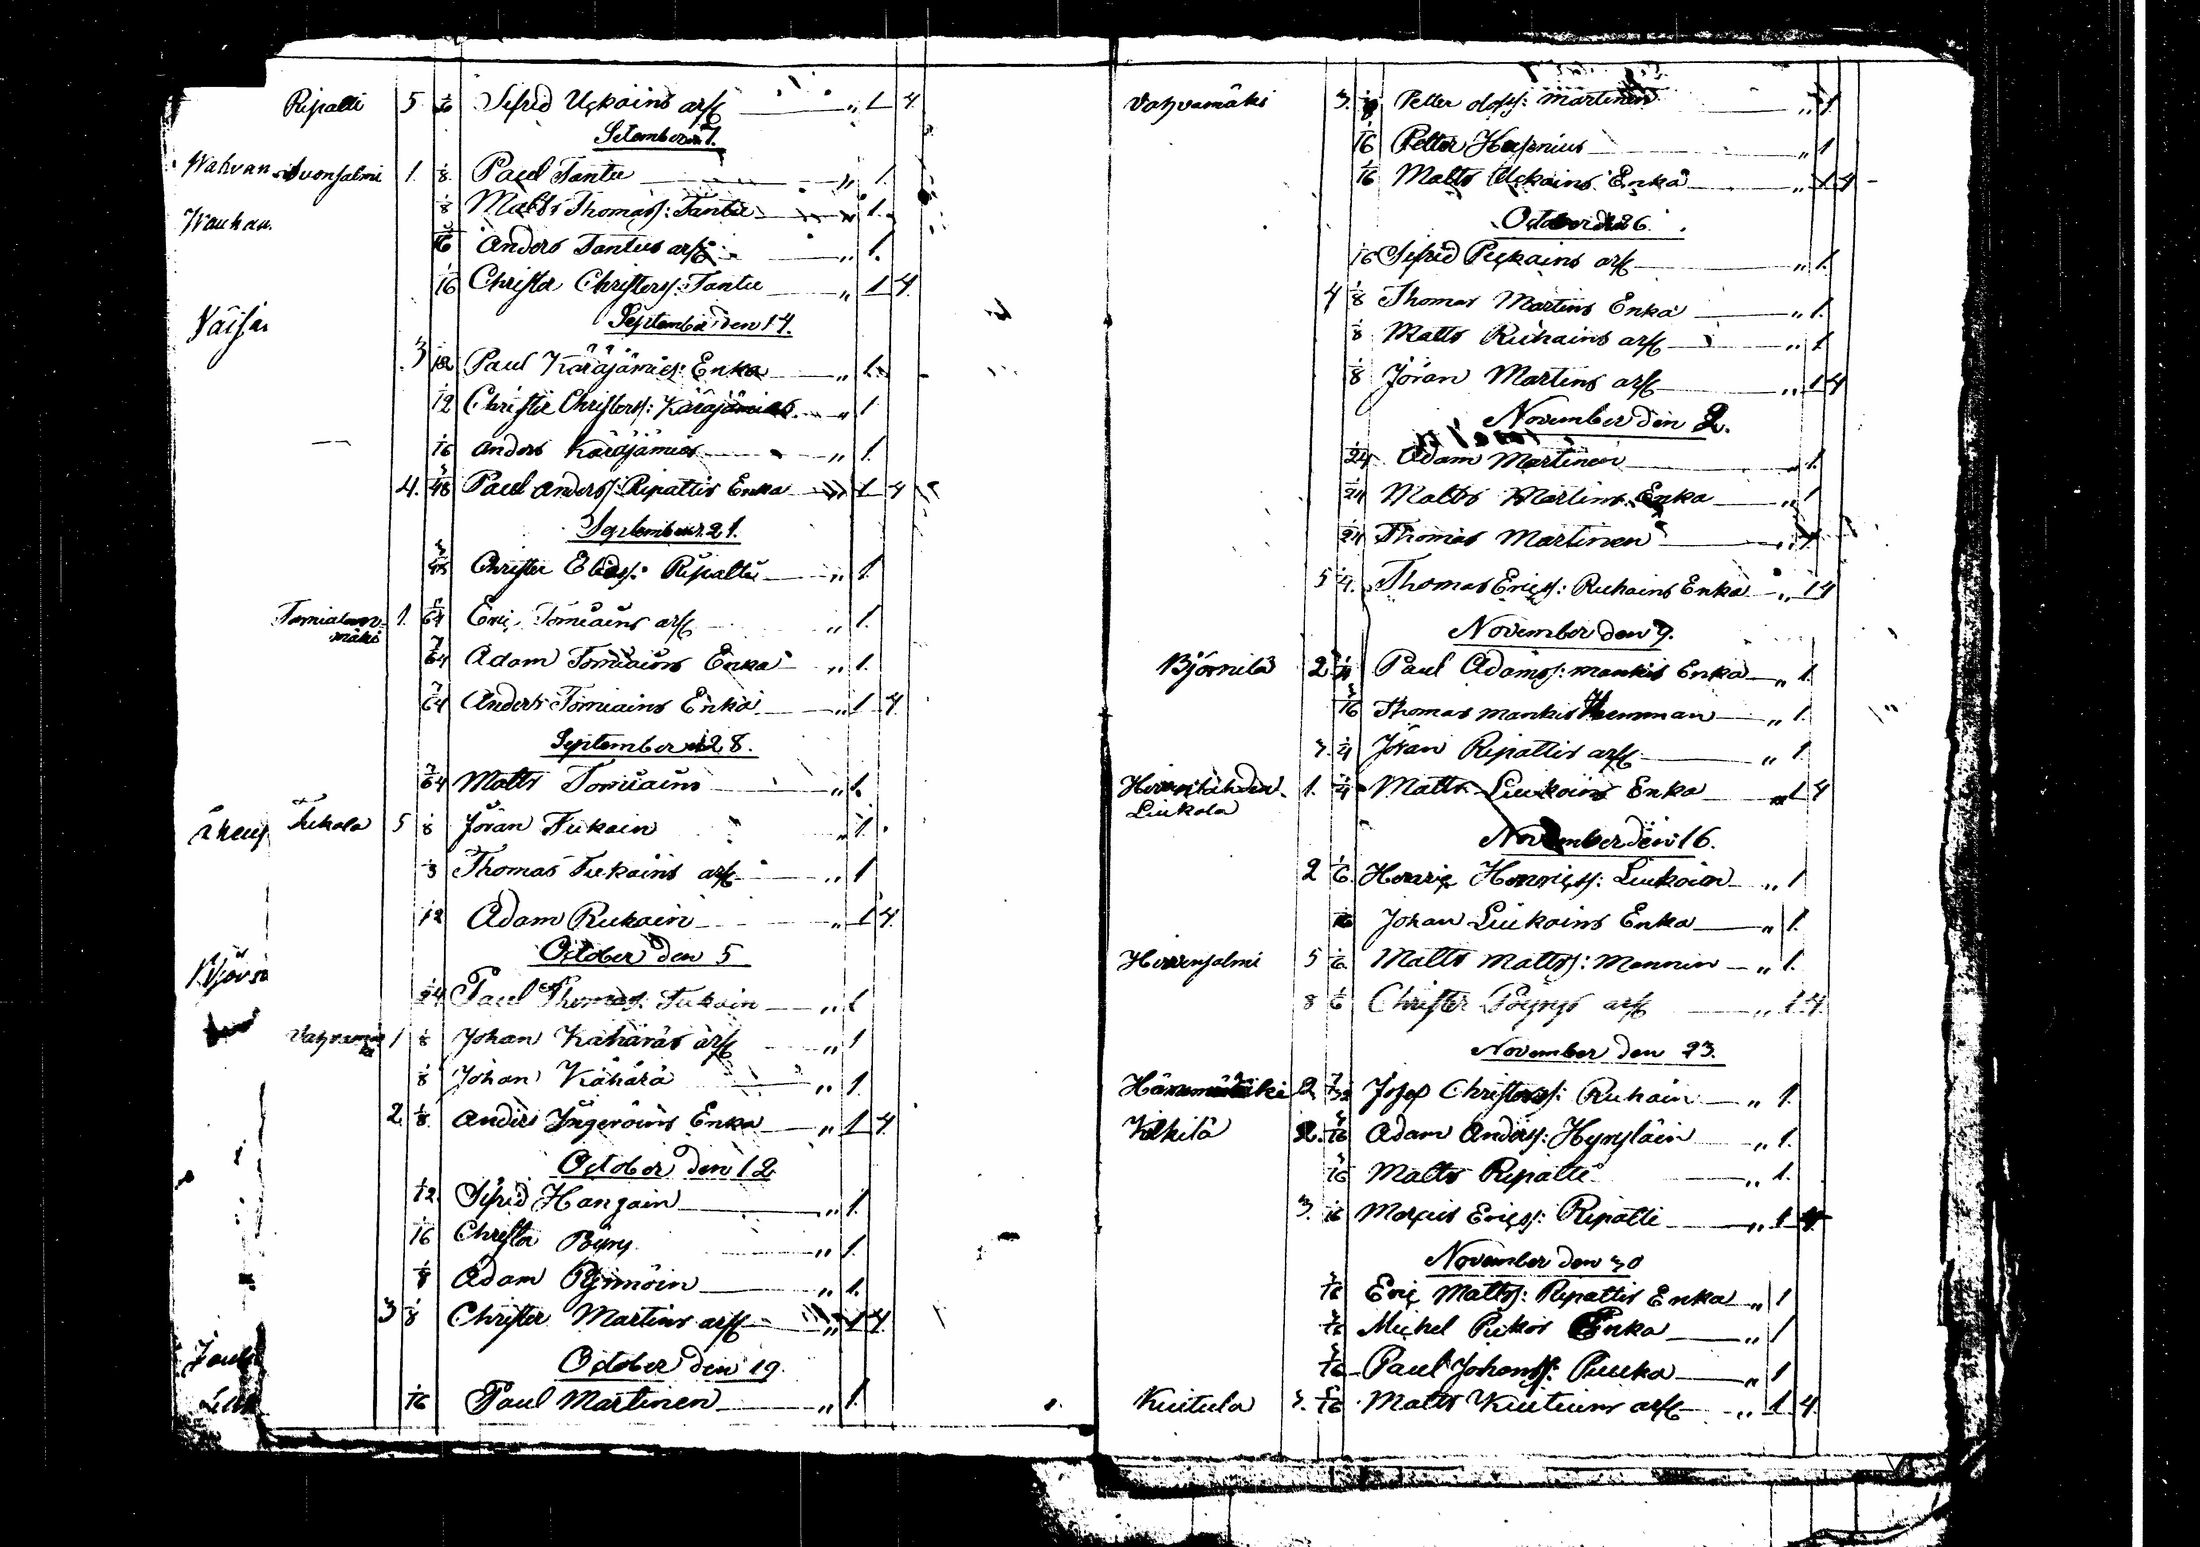 Ripatti 5 1/16 Sifred Uckains arf. " 1 4.
September 7.
Wahvan Suonsalmi 1. 1/8 Paul Tantu " 1.
1/8 Matts Thomass: Tantu " 1.
Wauhan.
1/16 Anders Tantus arf. " 1.
1/16 Christer Christerss: Tantu " 1 4.
September den 14.
Väisä
3 1/12 Paul Käräjämies: Enka " 1.
1/12 Christer Christerss: Käräjämies " 1
1/16 Anders Käräjämies " 1.
4. 3/48 Paul Anderss: Ripattis Enka " 1 4
September 21.
3/48 Christer Eliass: Ripatti " 1.
Tornialan-
mäki 1. 5/64 Eric Torniains arf. " 1.
7/64 Adam Torniains Enka " 1.
7/64 Anders Torniains Enka " 1 4.
September d 28.
7/64 Matts Torniain " 1.
Tukala 5 1/8 Jöran Tukain " 1.
1/3 Thomas Tukains arf. " 1
1/12 Adam Ruhain " 1 4.
October den 5
1/24 Paul Thomass: Tukain " 1
Vahvamä
ki 1 1/8 Johan Kähäräs arf. " 1
1/8 Johan Kähärä " 1.
2 1/8 Anders Ingeröins Enka " 1 4.
October den 12
1/12 Sifred Hanzain " 1.
1/16 Christer Pöyry " 1.
1/8 Adam Rynnöin " 1.
3 1/8 Christer Martins arf. " 1 4.
October den 19.
1/16 Paul Martinen " 1.
Vahvamäki 3. 1/8 Petter Olofss: Martinen " 1
1/16 Petter Hasenius " 1
1/16 Matts Uckains Enka " 1 4
October den 26.
1/16 Sifred Peckains arf. " 1.
4 1/8 Thomas Martins Enka " 1.
1/8 Matts Ruhains arf. " 1
1/8 Jöran Martins arf. " 1 4
November den 2.
1/24 Adam Martinen " 1.
1/24 Matts Martins Enka " 1
1/24 Thomas Martinen " 1
5 1/4. Thomas Ericss: Ruhains Enka " 1 4
November den 9.
Björnilä 2 1/4 Paul Adamss: Mankis Enka " 1.
3/16 Thomas Mankis Hemman " 1.
3. 1/4 Jöran Ripattis arf. " 1
Hirvenlahden
Liukola 1. 1/4 Matts Liukoins Enka " 1 4
November den 16.
2 1/6. Henric Henricss: Liukoin " 1
1/16 Johan Liukoins Enka " 1.
Hirvensalmi 5 1/6 Matts Mattss: Mannin " 1.
8 1/6 Christer Pöyrys arf. " 1 4.
November den 23.
Hännemäki 2 7/32 Josef Christerss: Ruhain " 1.
Kilkilä 2. 3/16 Adam Anderss: Hyryläin " 1.
3/16 Matts Ripatti " 1.
3. 1/16 Marcus Ericss: Ripatti " 1 4
November den 30
3/16 Eric Mattss: Ripattis Enka " 1
3/16 Michel Pukos Enka " 1
3/16 Paul Johanss: Puuka " 1
Kuitula 3. 5/16 Matts Kuituins arf. " 1 4.